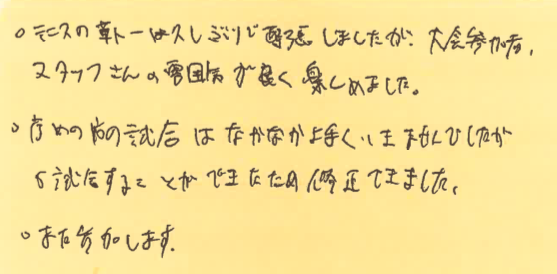 ○テニスの草トーは久しぶりで緊張しましたが、大会参加者、
スタッフさんの雰囲気が良く楽しめました。
○序めの方の試合はなかなか上手くいきませんでしたが
5試合することができたため修正できました。
○また参加します。